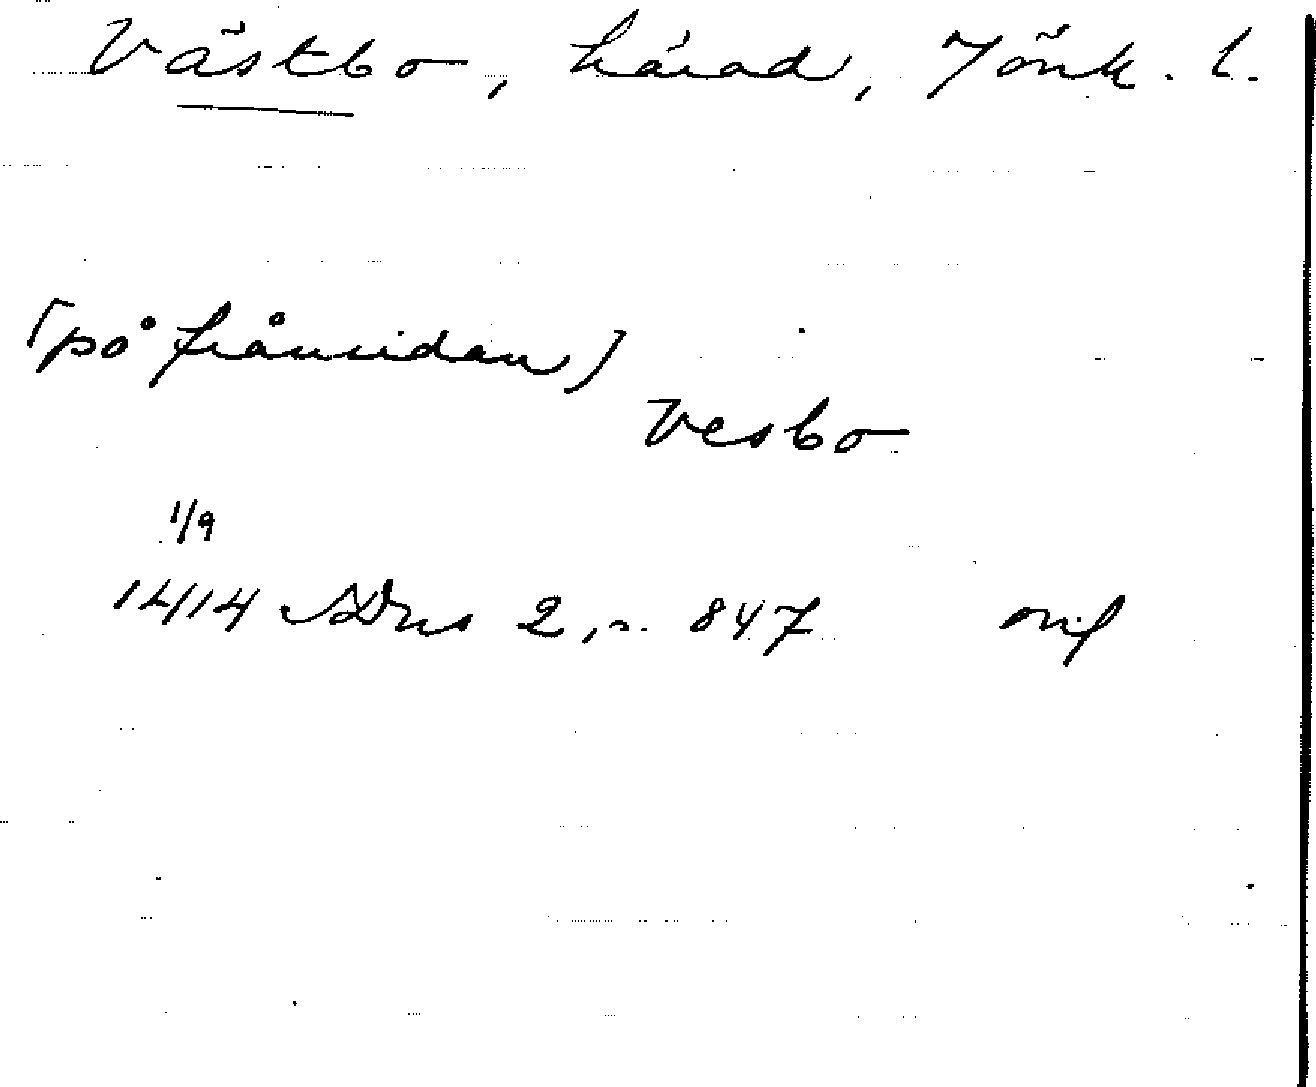 Västbo, härad, Jönk. l.
[på frånsidan]
Vesbo
1/9
1414 SDns 2, n. 847 orig